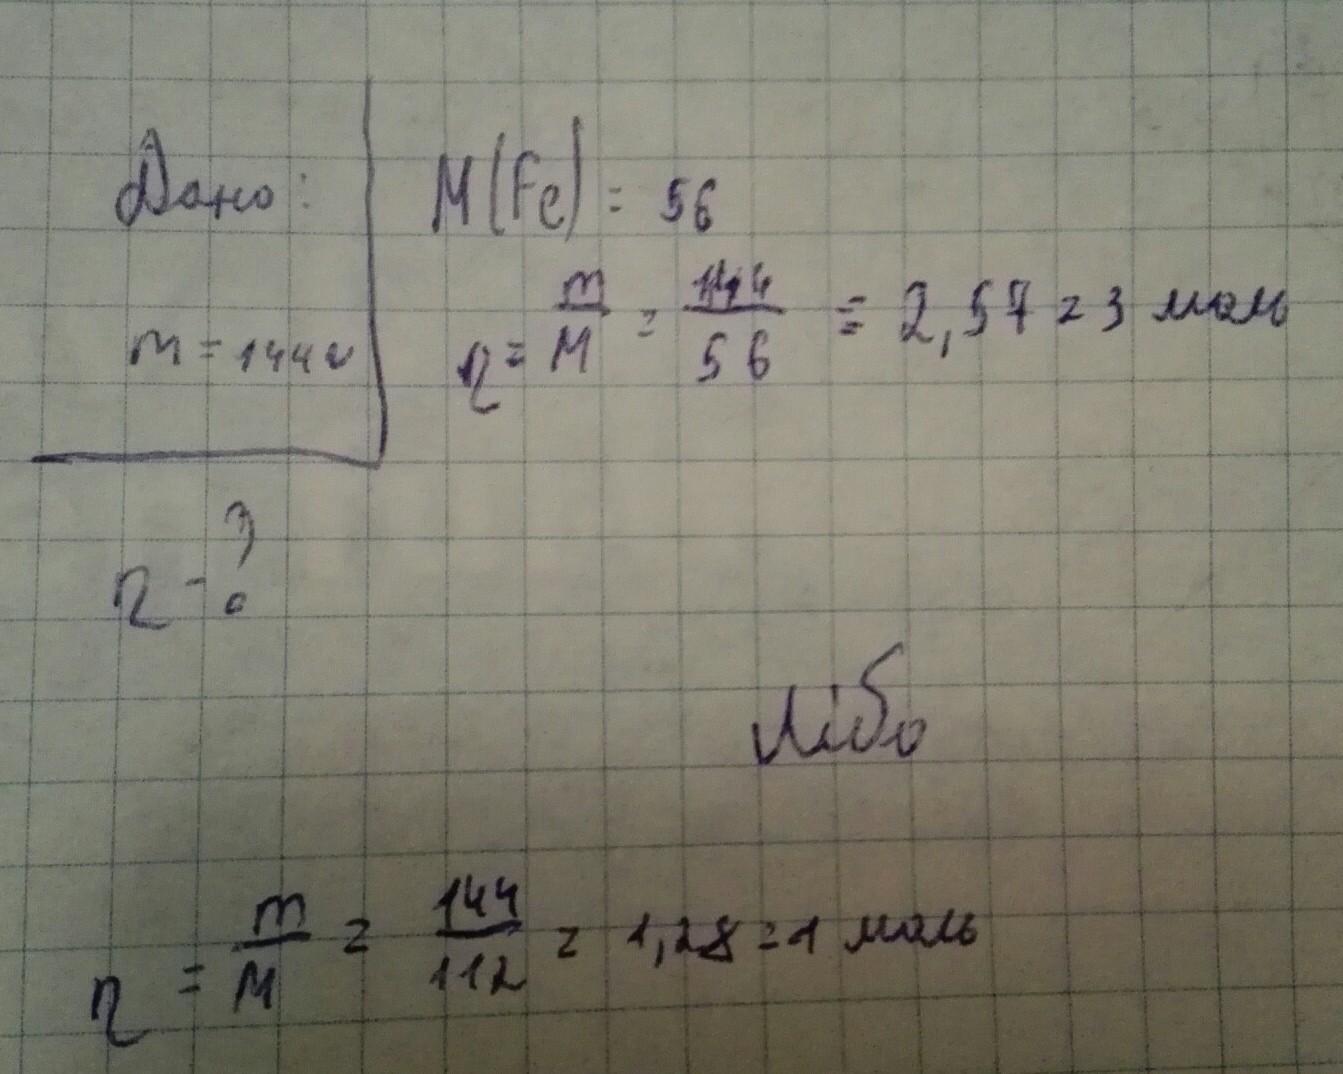 Дано:
m = 144 г
η - ?
M(Fe) = 56
η = m/M = 144/56 = 2,57 = 3 моль
Лібо
η = m/M = 144/112 = 1,28 = 1 моль